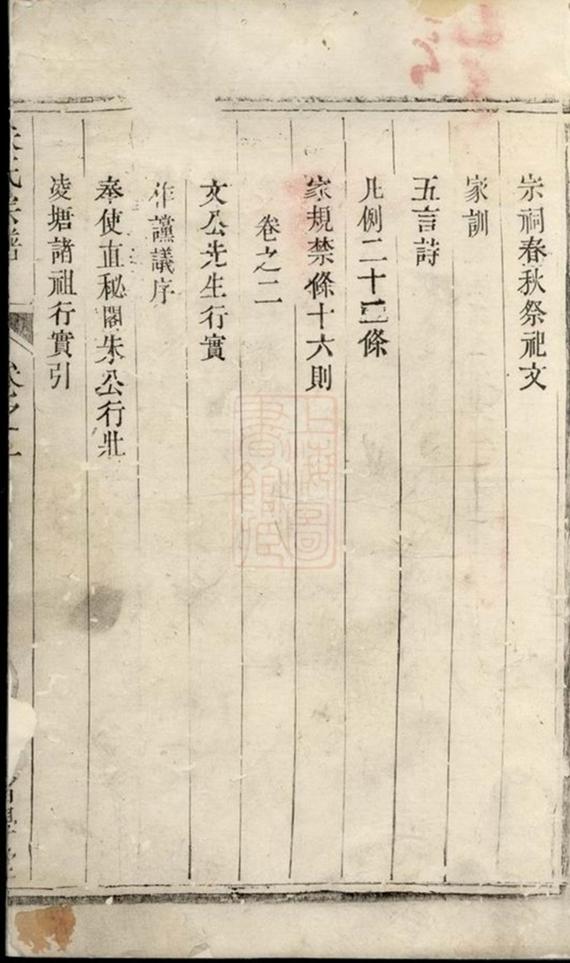 宗祠春秋祭祀文
家訓
五言詩
凡例二十三條
家規禁條十六則
卷之二
文公先生行實
作讜議序
奉使直秘閣朱公行狀
凌塘諸祖行實引
氏宗譜
上海圖書館藏